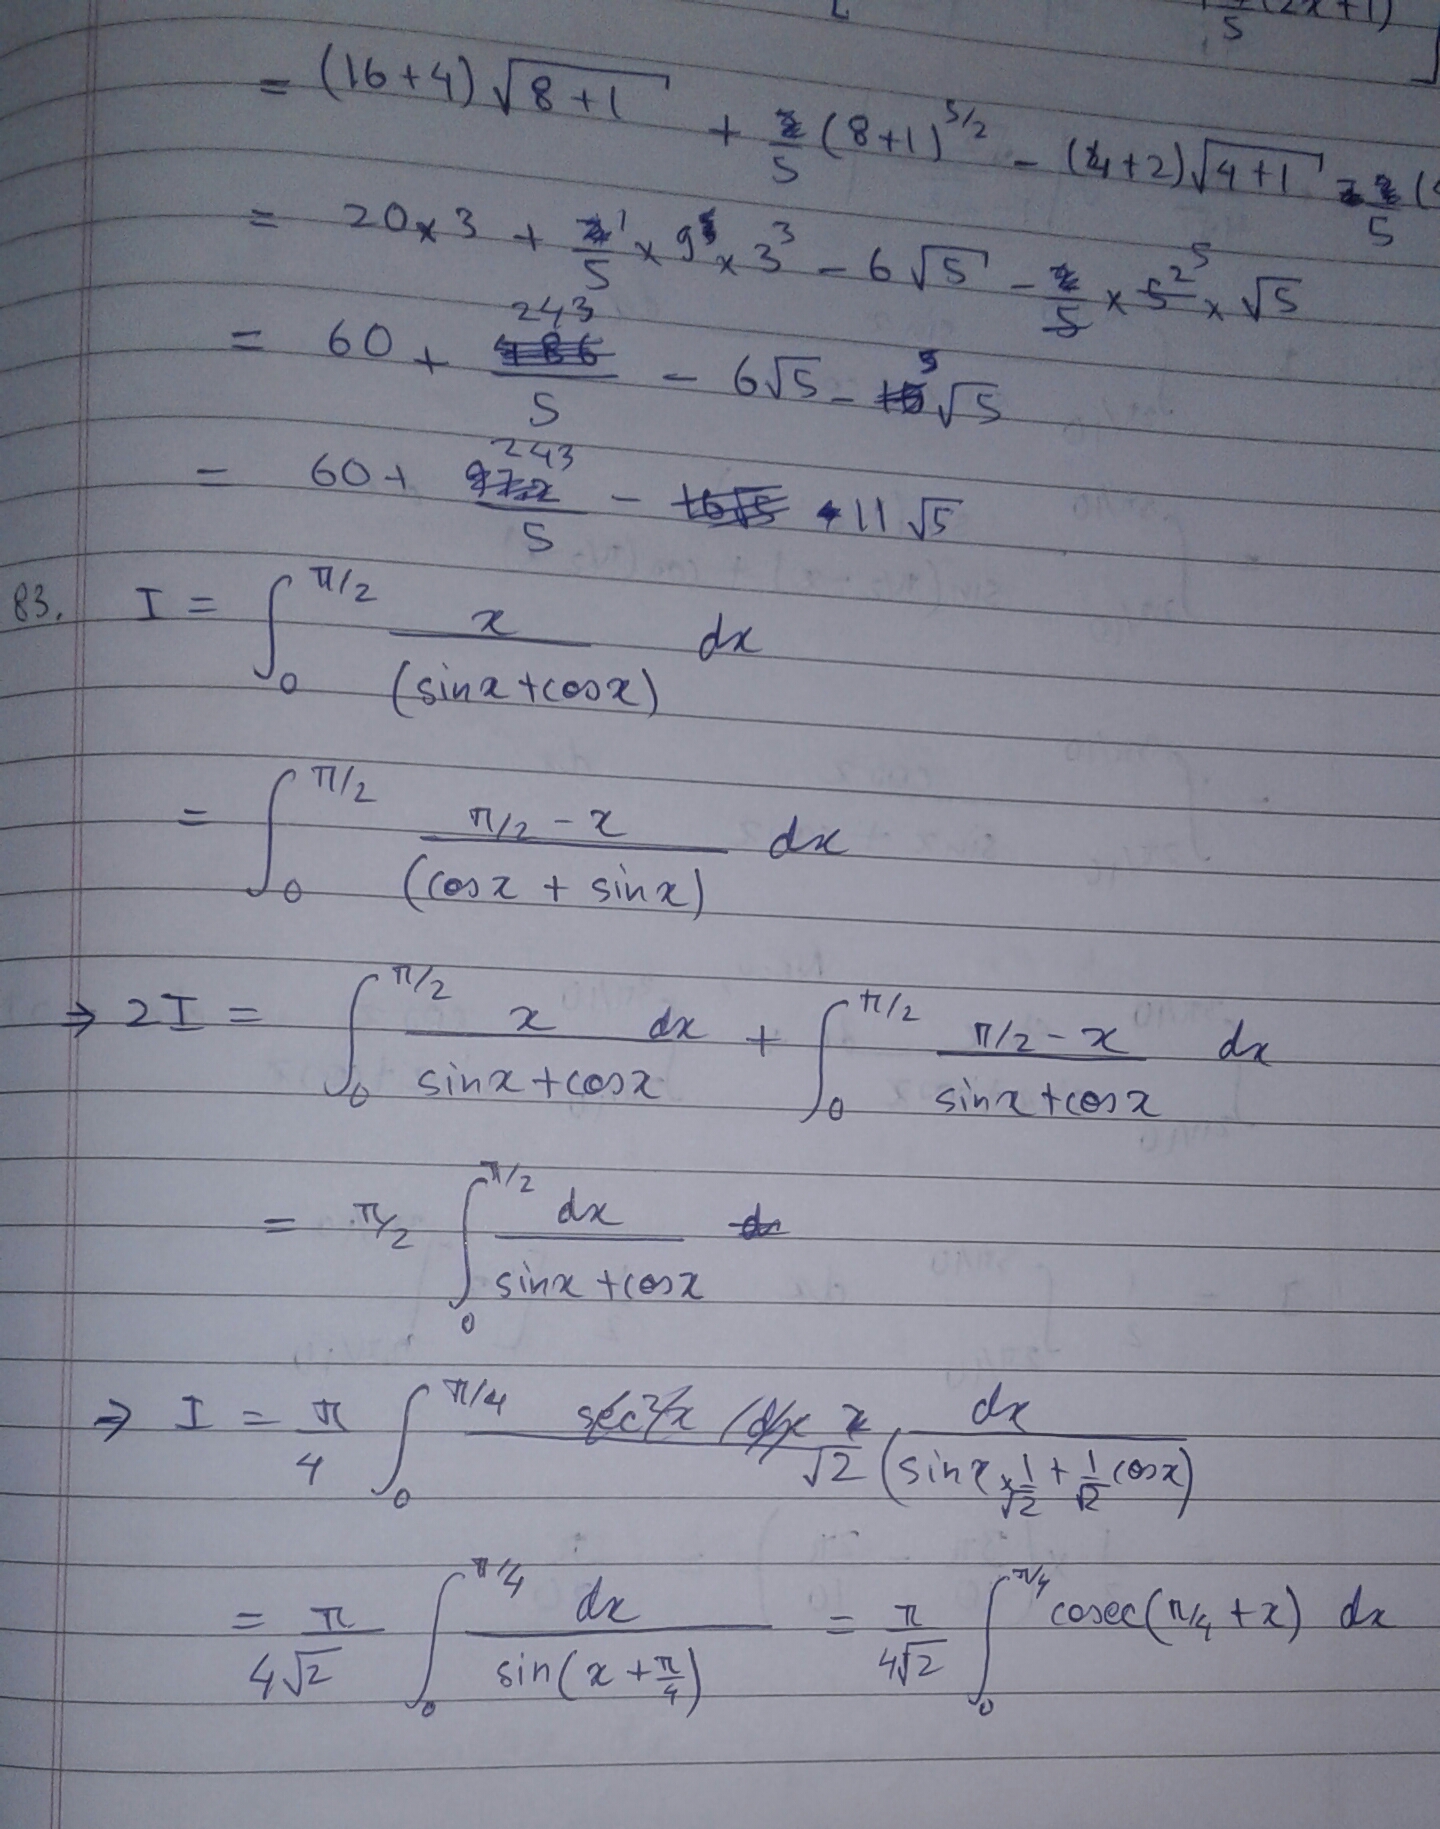 5 (2x+1)
= (16+4) √(8+1) + 2/5 (8+1)^5/2 - (4+2) √(4+1) - 2/5 (
= 20×3 + 1/5 × 9 × 3^3 - 6√5 - 2/5 × 5^2 × √5
= 60 + 243/5 - 6√5 - 5√5
= 60 + 243/5 - 11√5
83. I = ∫_0^π/2 x/(sinx+cosx) dx
= ∫_0^π/2 (π/2-x)/(cosx + sinx) dx
⇒ 2I = ∫_0^π/2 x/(sinx+cosx) dx + ∫_0^π/2 (π/2-x)/(sinx+cosx) dx
= π/2 ∫_0^π/2 dx/(sinx+cosx)
⇒ I = π/4 ∫_0^π/4 dx/(√2 (sinx × 1/√2 + 1/√2 cosx))
= π/4√2 ∫_0^π/4 dx/sin(x+π/4) = π/4√2 ∫_0^π/4 cosec(π/4+x) dx